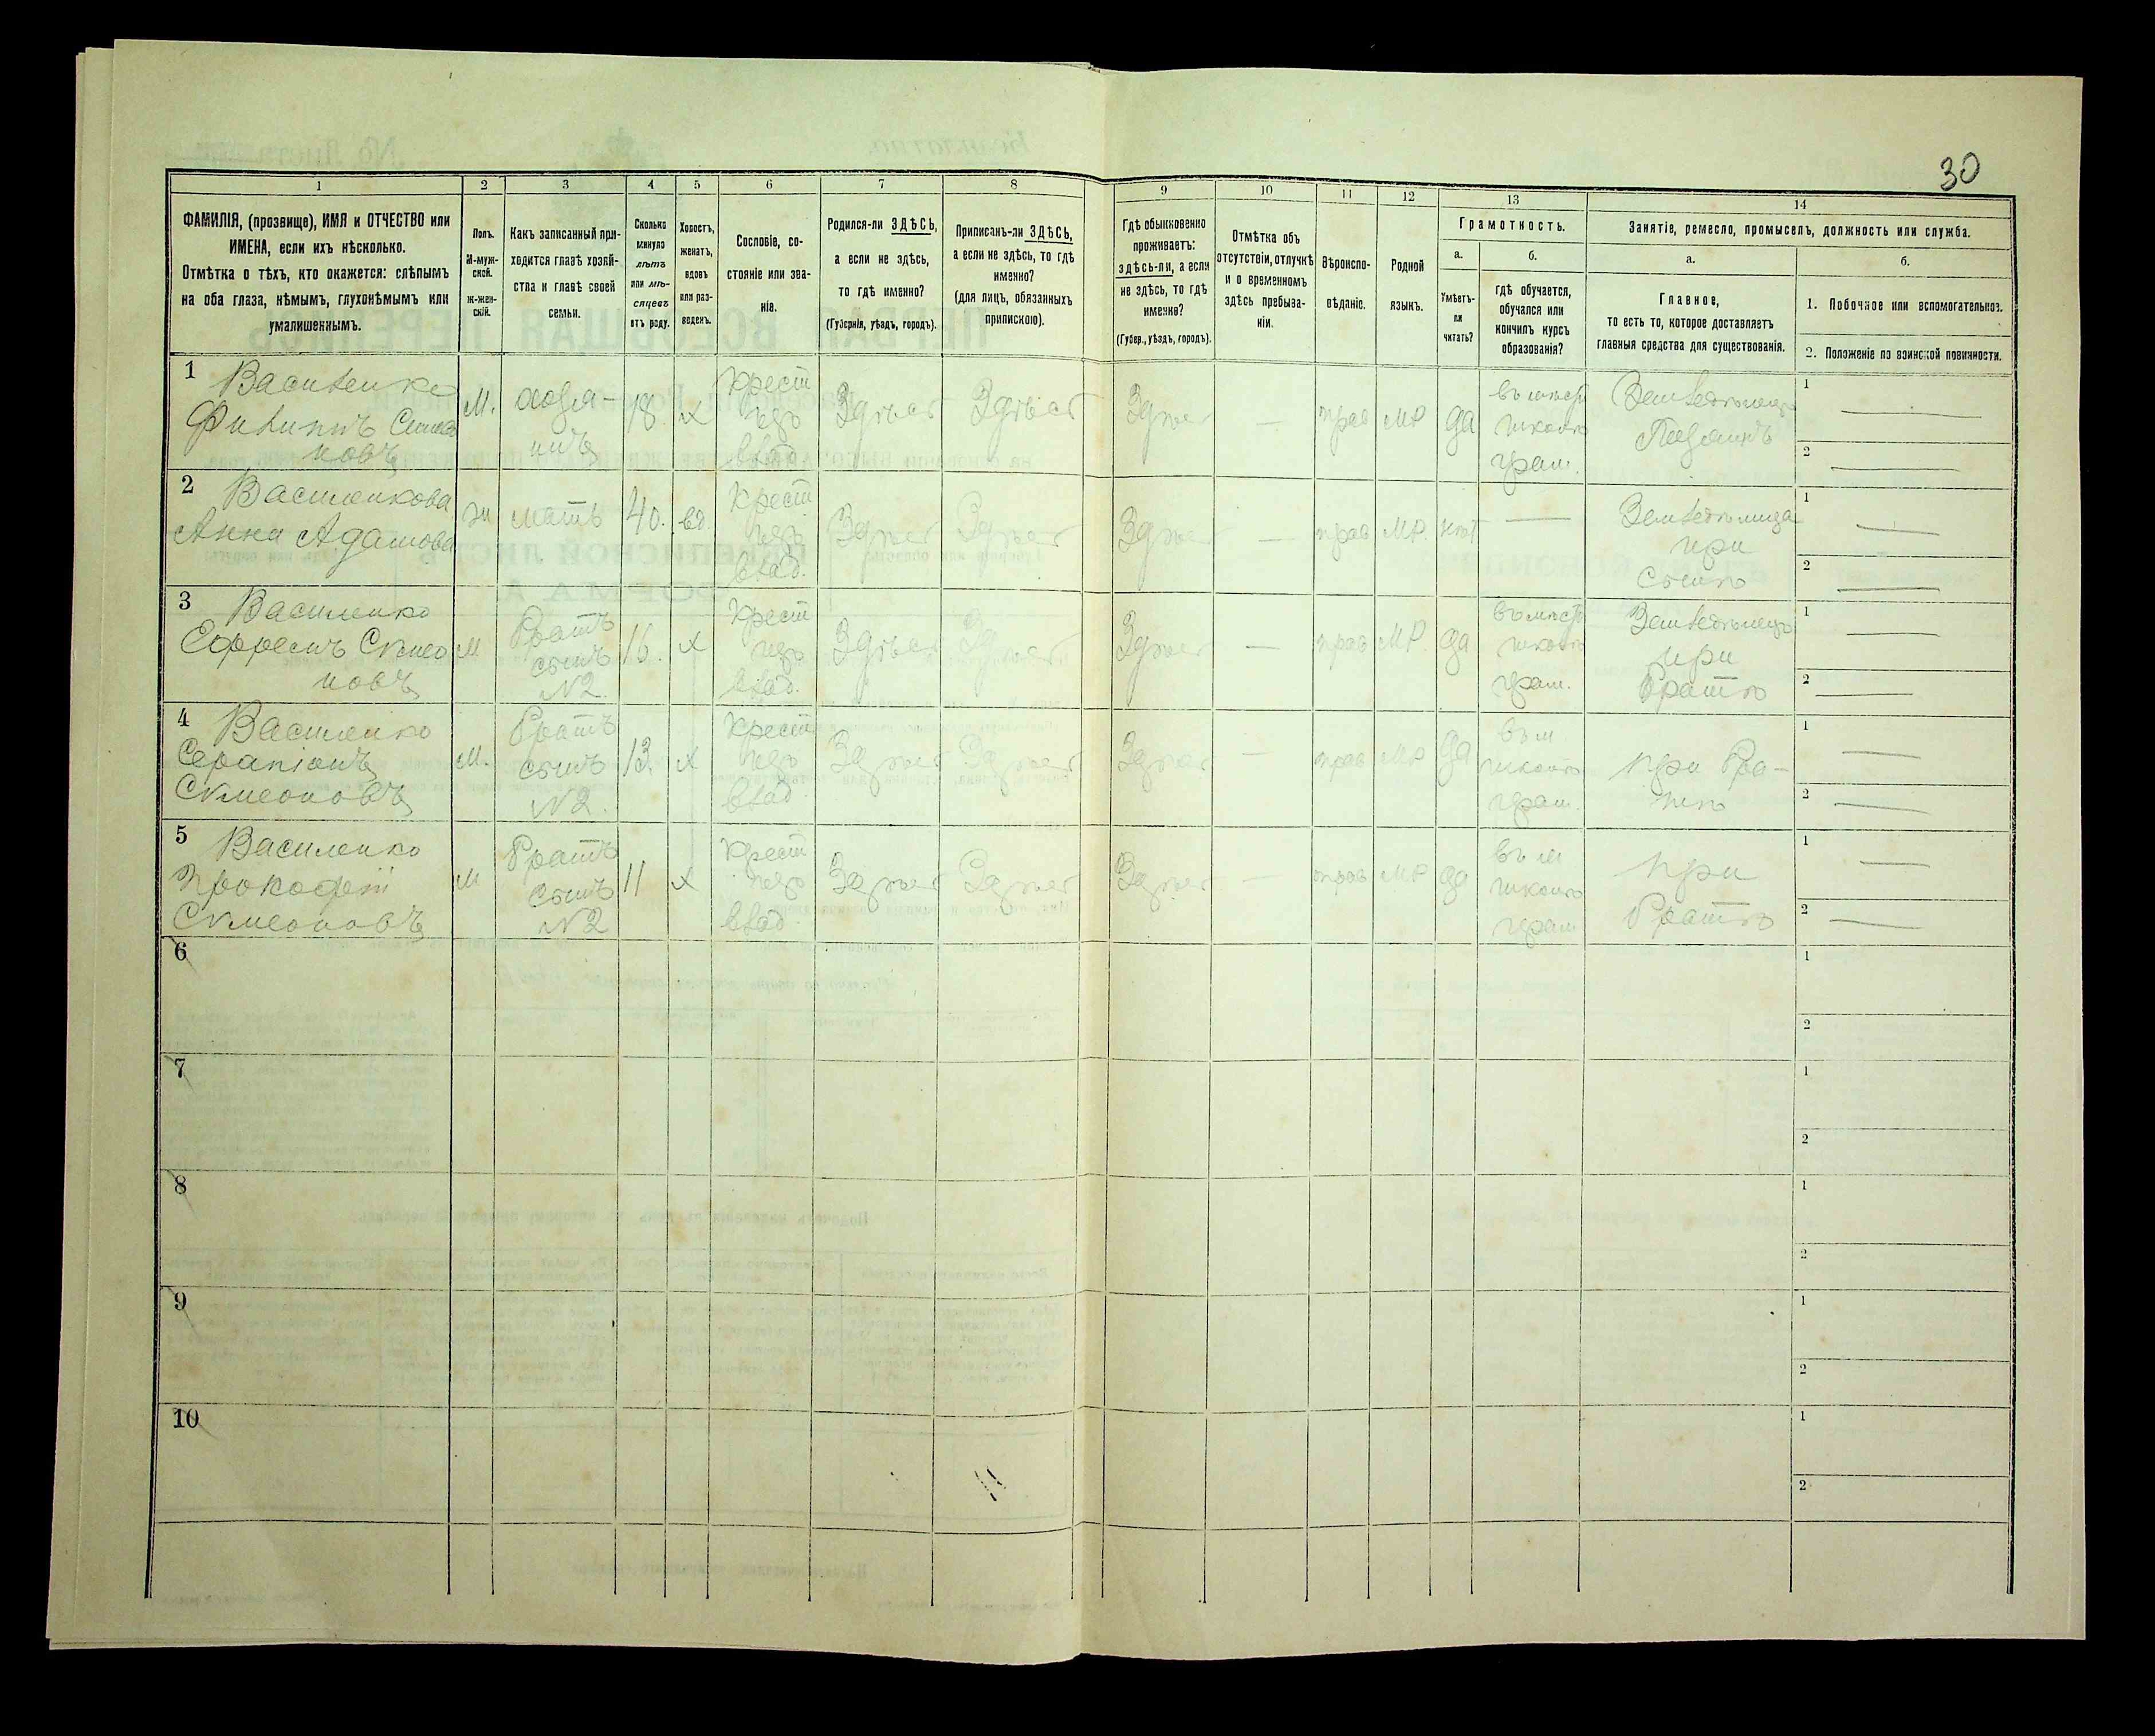 30
1 2 3 4 5 6 7 8 9 10 11 12 13 14
ФАМИЛІЯ, (прозвище), ИМЯ и ОТЧЕСТВО или
ИМЕНА, если ихъ нѣсколько.
Отмѣтка о тѣхъ, кто окажется: слѣпымъ
на оба глаза, нѣмымъ, глухонѣмымъ или
умалишеннымъ.
Полъ.
М-муж-
ской.
Ж-жен-
скій.
Какъ записанный при-
ходится главѣ хозяй-
ства и главѣ своей
семьи.
Сколько
минуло
лѣтъ
или мѣ-
сяцевъ
отъ роду.
Холостъ,
женатъ,
вдовъ
или раз-
веденъ.
Сословіе, со-
стояніе или зва-
ніе.
Родился-ли ЗДѢСЬ,
а если не здѣсь,
то гдѣ именно?
(Губернія, уѣздъ, городъ).
Приписанъ-ли ЗДѢСЬ,
а если не здѣсь, то гдѣ
именно?
(для лицъ, обязанныхъ
припискою).
Гдѣ обыкновенно
проживаетъ:
здѣсь-ли, а если
не здѣсь, то гдѣ
именно?
(Губер., уѣздъ, городъ).
Отмѣтка объ
отсутствіи, отлучкѣ
и о временномъ
здѣсь пребыва-
ніи.
Вѣроиспо-
вѣданіе.
Родной
языкъ.
Грамотность.
а.
Умѣетъ-
ли
читать?
б.
гдѣ обучается,
обучался или
кончилъ курсъ
образованія?
Занятіе, ремесло, промыселъ, должность или служба.
а.
Главное,
то есть то, которое доставляетъ
главныя средства для существованія.
б.
1. Побочное или вспомогательное.
2. Положеніе по воинской повинности.
1 Василенко
Филиппъ Симео
новъ
М.
хозя-
инъ
18.
х
Крест
изъ
влад.
Здѣсь
Здѣсь
Здѣсь
—
прав
МР
да
школѣ
грам.
Земледѣлецъ
Хозяинъ
1 —
2 —
2 Василенкова
Анна Адамова
ж
мать
40.
вд.
Крест
изъ
влад.
Здѣсь
Здѣсь
Здѣсь
—
прав
МР.
нѣт
—
Земледѣлица
при
сынѣ
1 —
2 —
3 Василенко
Ефремъ Симео
новъ
М
Братъ
сынъ
№2.
16.
х
Крест
изъ
влад.
Здѣсь
Здѣсь
Здѣсь
—
прав
МР.
да
школѣ
грам.
Земледѣлецъ
при
братѣ
1 —
2 —
4 Василенко
Серапіонъ
Симеоновъ
М.
Братъ
сынъ
№2.
13.
х
Крест
изъ
влад.
Здѣсь
Здѣсь
Здѣсь
—
прав
МР
да
въ м
школѣ
грам.
при бра-
тѣ
1 —
2 —
5 Василенко
Прокофій
Симеоновъ
М
Братъ
сынъ
№2
11
х
Крест
изъ
влад.
Здѣсь
Здѣсь
Здѣсь
—
прав
МР
да
въ м
школѣ
грам
при
братѣ
1 —
2 —
6
1
2
7
1
2
8
1
2
9
1
2
10
1
2